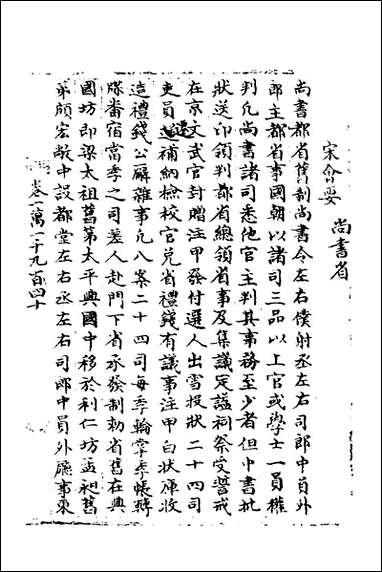 宋會要
尚書省
尚書都省舊制尚書令左右僕射丞左右司郎中員外
郎主都省事國朝以諸司三品以上官或學士一員權
判凡尚書諸司悉他官主判其事務至少者但中書批
狀送印領判都省總領省事及集議定謚祠祭受誓戒
在京文武官封贈注甲發付選人出雪投狀二十四司
吏員遷補納檢校官兌省禮錢有議事注甲白狀庫收
造禮錢公廨雜事凡八案二十四司每季輪掌季帳轉
牒畨宿當季之司差人赴門下省承發制勅省舊在興
國坊即梁太祖舊第太平興國中移於利仁坊孟昶舊
第頗宏敞中設都堂左右丞左右司郎中員外廳事東
卷一萬一千九百四十